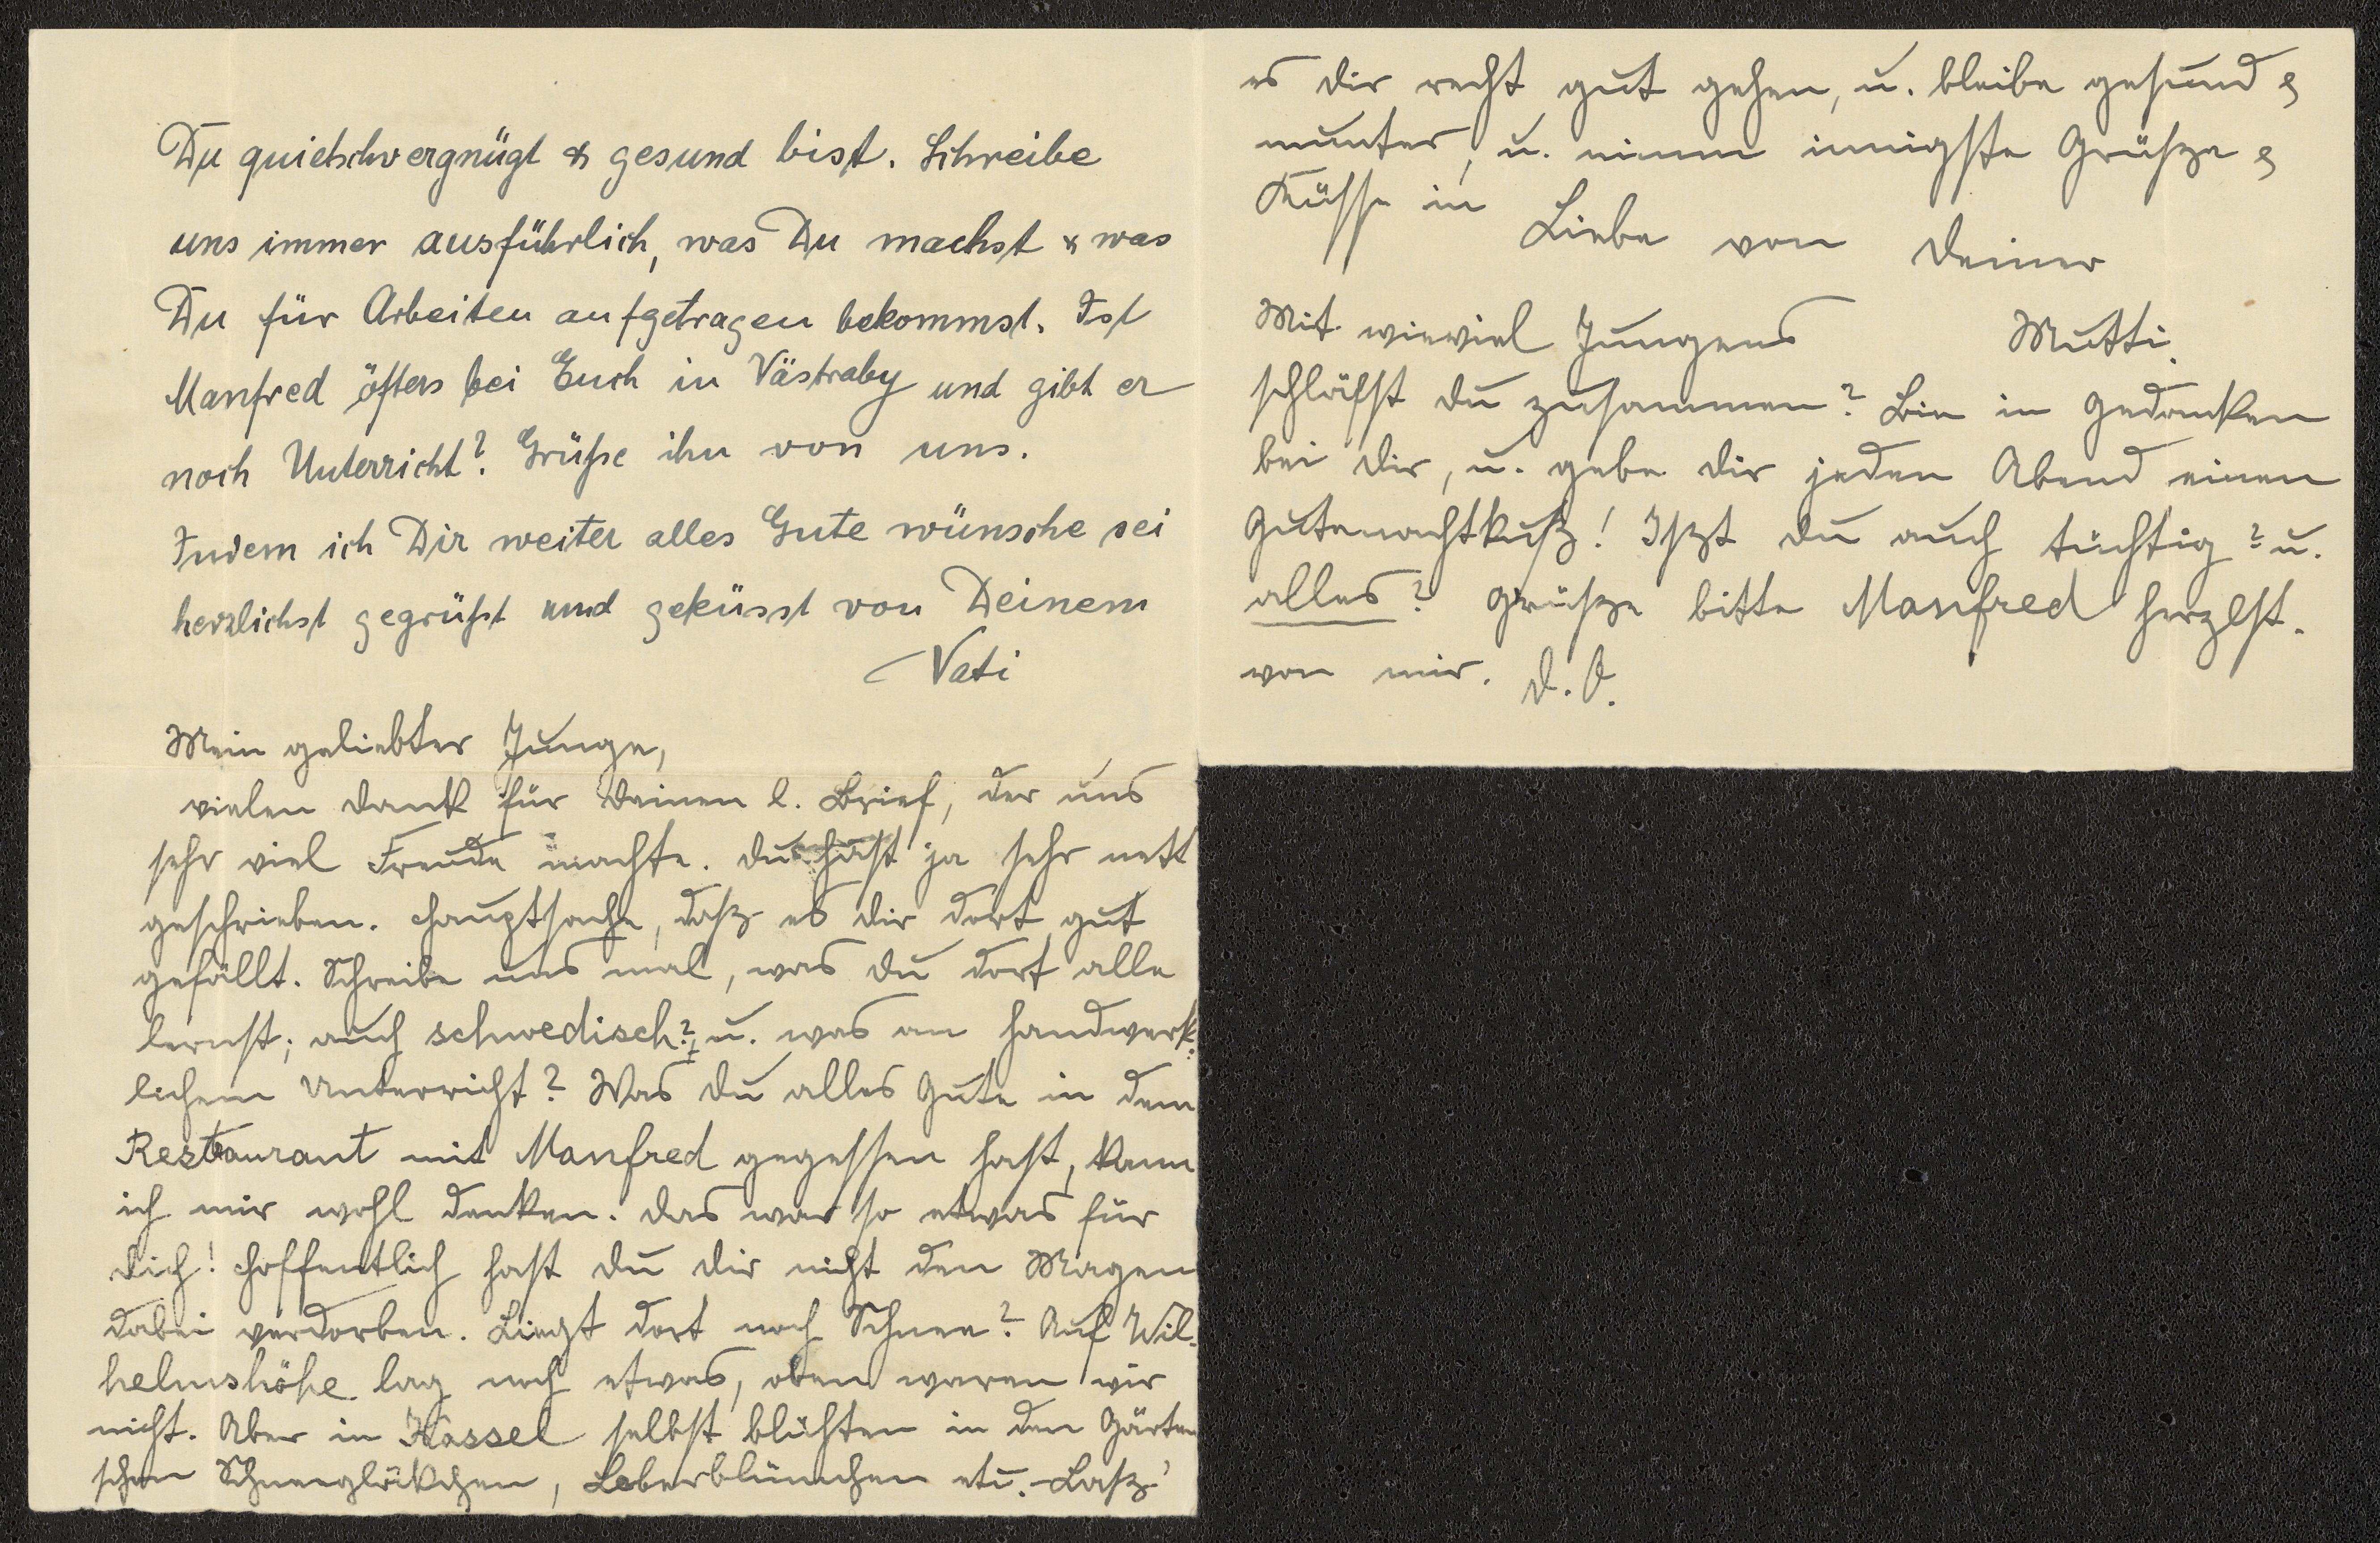 Du quietschvergnügt & gesund bist. Schreibe
uns immer ausführlich, was Du machst & was
Du für Arbeiten aufgetragen bekommst. Ist
Manfred öfters bei Euch in Västraby und gibt er
noch Unterricht? Grüße ihn von uns.
Indem ich Dir weiter alles Gute wünsche sei
herzlichst gegrüßt und geküsst von Deinem
Vati
Mein geliebter Junge,
vielen Dank für Deinen l. Brief, der uns
sehr viel Freude machte. Du hast ja sehr nett
geschrieben. Hauptsache, daß es dir dort gut
gefällt. Schreibe uns mal, was du dort alle
lernst; auch schwedisch? u. was an handwerk-
lichem Unterricht? Was du alles Gute in dem
Restaurant mit Manfred gegessen hast, kann
ich mir wohl denken. Das war so etwas für
dich! Hoffentlich hast du dir nicht den Magen
dabei verdorben. Liegt dort noch Schnee? Auf Wil-
helmshöhe lag noch etwas, oben waren wir
nicht. Aber in Kassel selbst blühten in den Gärten
schon Schneeglökchen, Leberblümchen etc. – Laß'
es dir recht gut gehen, u. bleibe gesund &
munter, u. nimm innigste Grüße &
Küsse in Liebe von Deiner
Mutti.
Mit wieviel Jungens
schläfst du zusammen? Bin in Gedanken
bei dir, u. gebe dir jeden Abend einen
Gutenachtkuß! Ißt du auch tüchtig? u.
alles? Grüße bitte Manfred herzlst.
von mir. D. O.